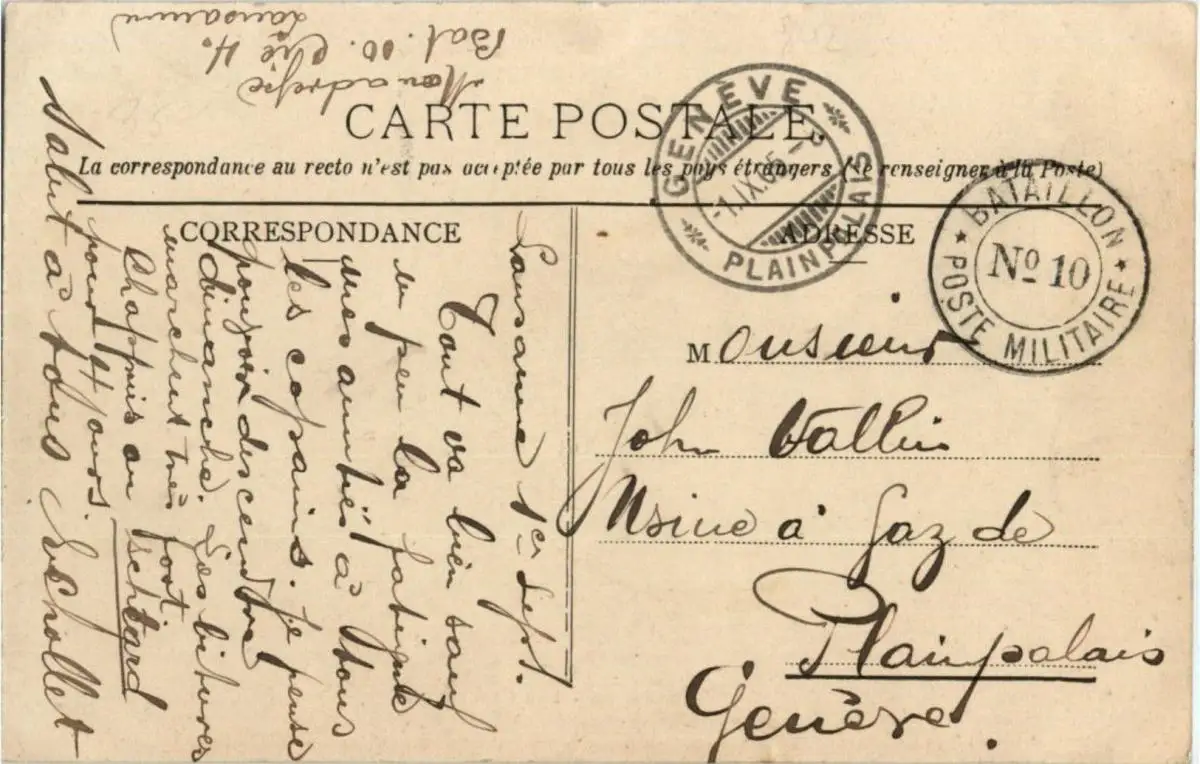 Mon adresse
Bat. 10. Cie 4.
Lausanne
CARTE POSTALE
La correspondance au recto n'est pas acceptée par tous les pays étrangers (Se renseigner à la Poste)
CORRESPONDANCE
ADRESSE
GENÈVE
-1.IX.05.
PLAINPALAIS
BATAILLON
No 10
POSTE MILITAIRE
Lausanne 1er Sept.
Tout va bien sauf
un peu la fatigue
mes amitiés à tous
les copains. Je pense
pouvoir descendre
dimanche. Les bitures
marchent très fort
Chappuis au schtard
pour 4 jours.
Salut à tous
Monsieur
John
Usine à Gaz de
Plainpalais
Genève.